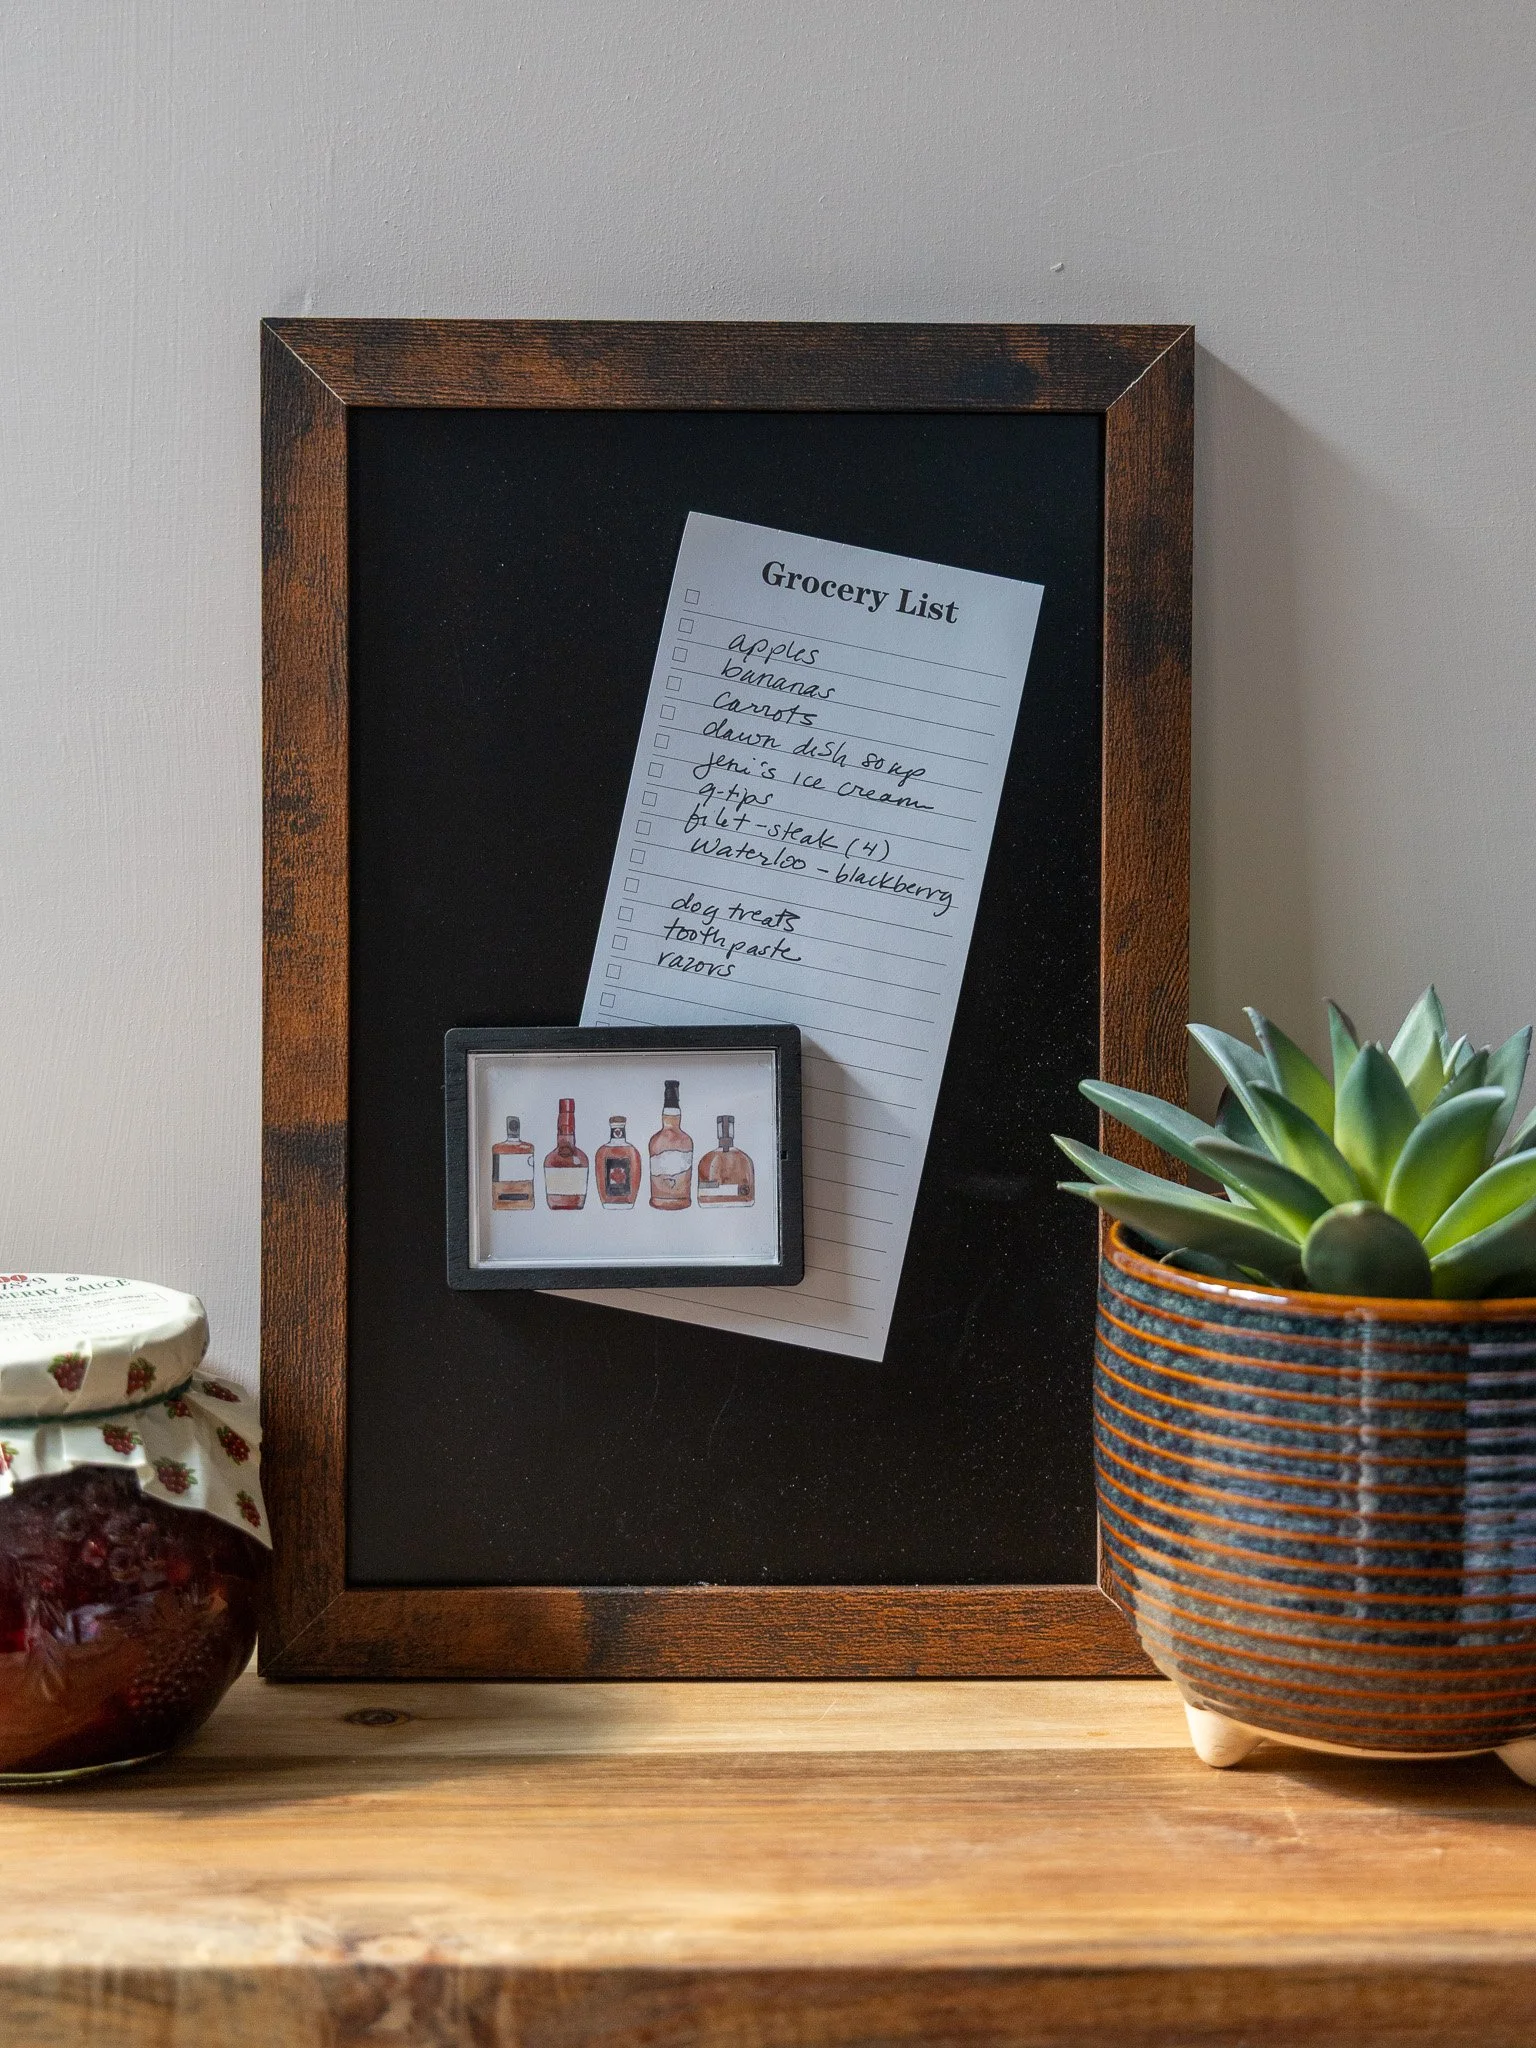 Grocery List
apples
bananas
carrots
dawn dish soap
jeni's ice cream
q-tips
filet-steak (4)
Waterloo - blackberry
dog treats
toothpaste
razors
BERRY SAUCE